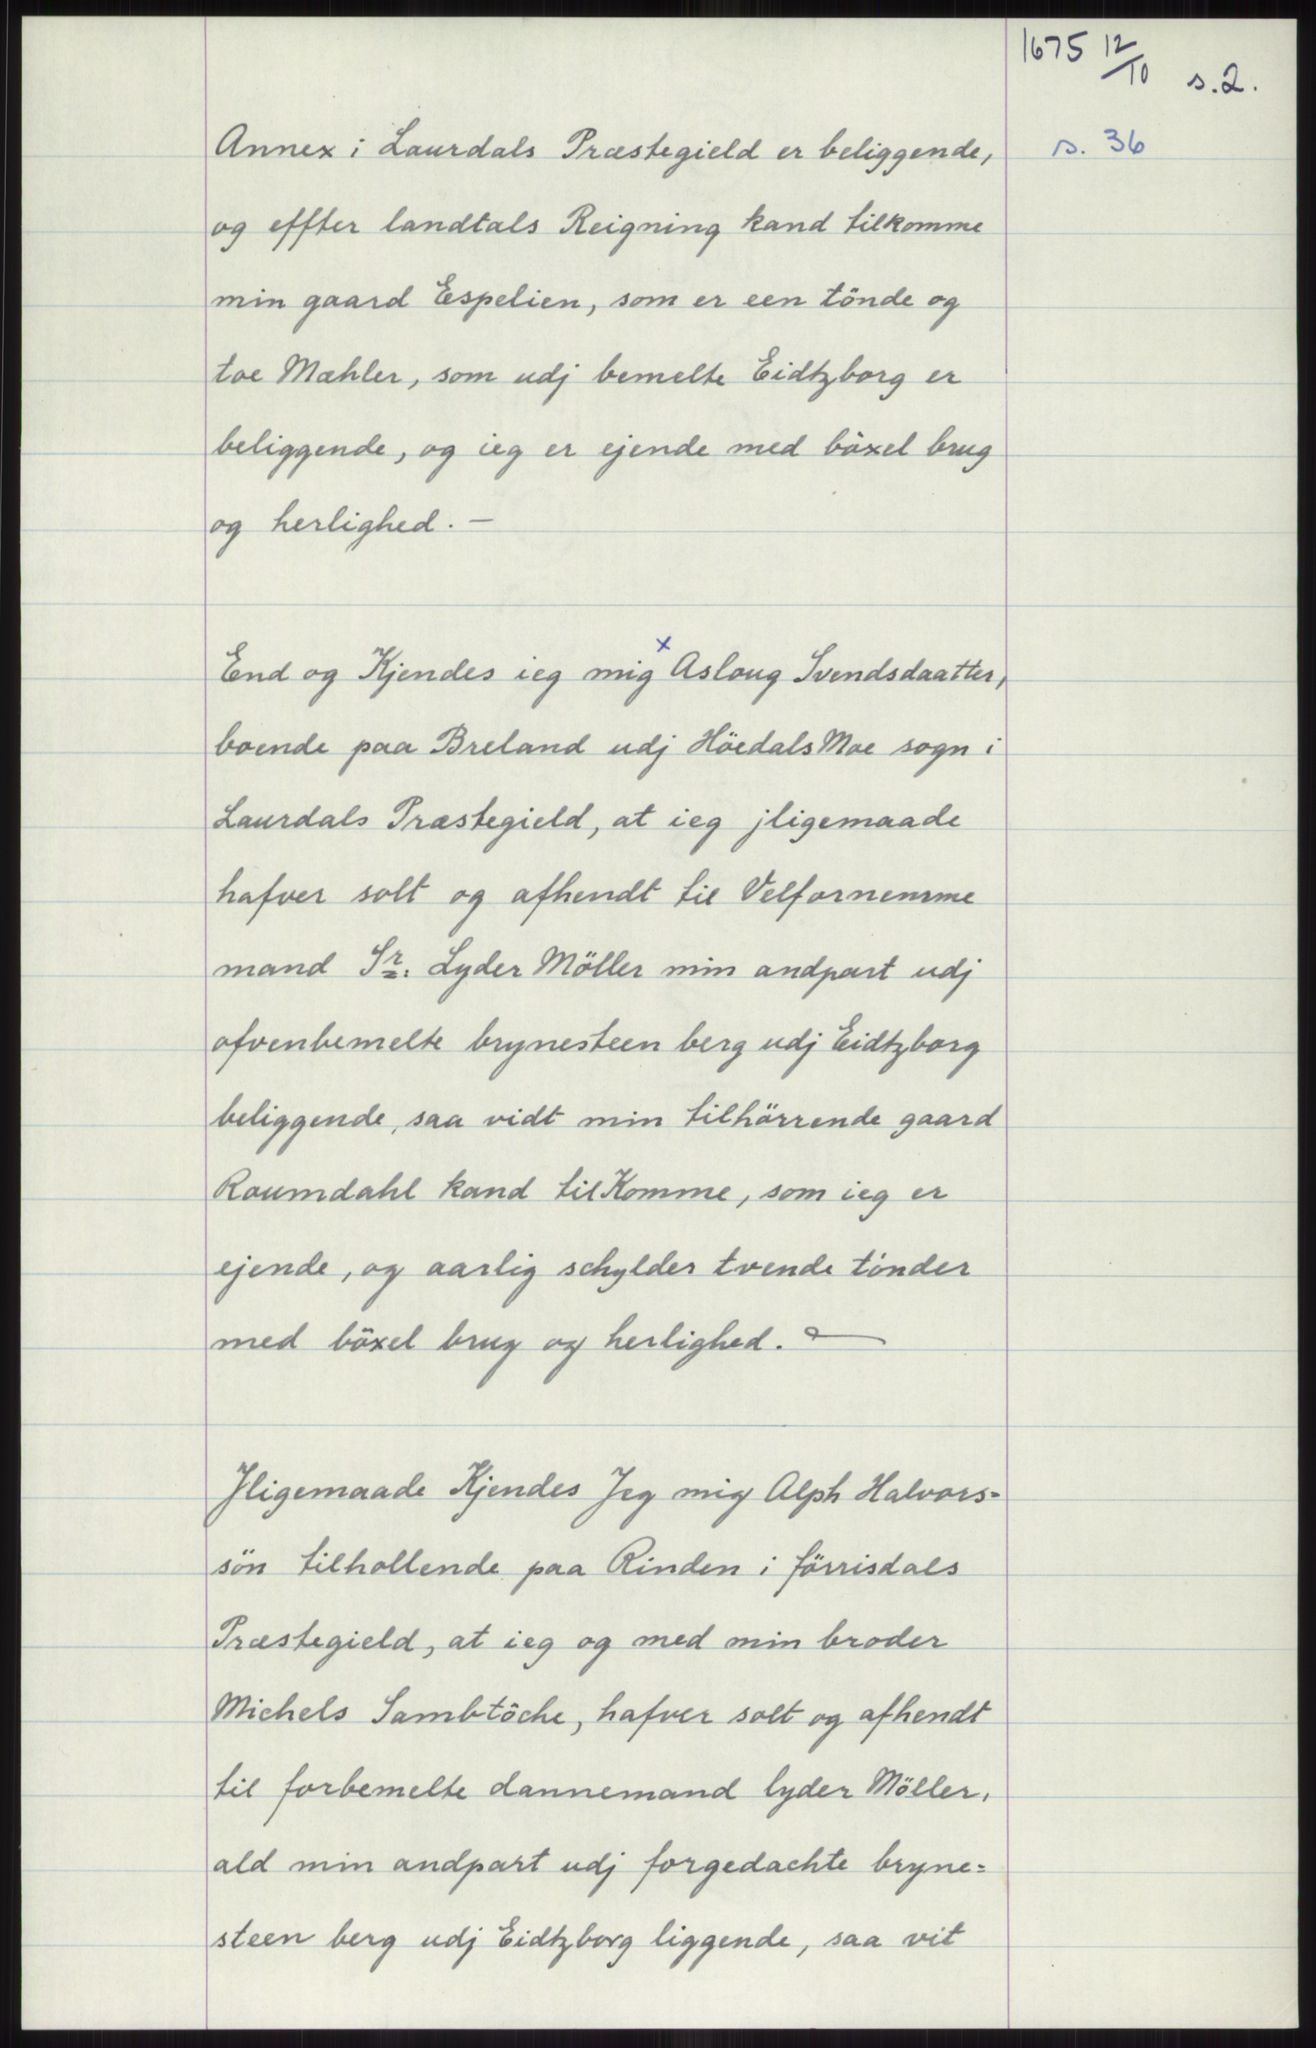 1675 12/10 s.2.
s. 36
Annex i Laurdals Præstegield er beliggende,
og effter landtals Reigning kand tilkomme
min gaard Espelien, som er een tönde og
toe Mæhler, som udj bemelte Eidtzborg er
beliggende, og ieg er ejende med böxel brug
og herlighed. —
End og Kjendes ieg mig x Asloug Svendsdaatter,
boende paa Breland udj Höedals Moe sogn i
Laurdals Præstegield, at ieg jligemaade
hafver solt og afhendt til Velfornemme
mand Sr: Lyder Möller min andpart udj
ofvenbemelte brynesteen berg udj Eidtzborg
beliggende, saa vidt min tilhörrende gaard
Roumdahl kand tilKomme, som ieg er
ejende, og aarlig schylder tvende tönder
med böxel brug og herlighed. —
Jligemaade Kjendes Jeg mig Alph Halvors=
sön tilhollende paa Rinden i förrisdals
Præstegield, at ieg og med min broder
Michels Sambtöche, hafver solt og afhendt
til forbemelte dannemand lyder Möller,
ald min andpart udj forgedachte bryne=
steen berg udj Eidtzborg liggende, saa vit